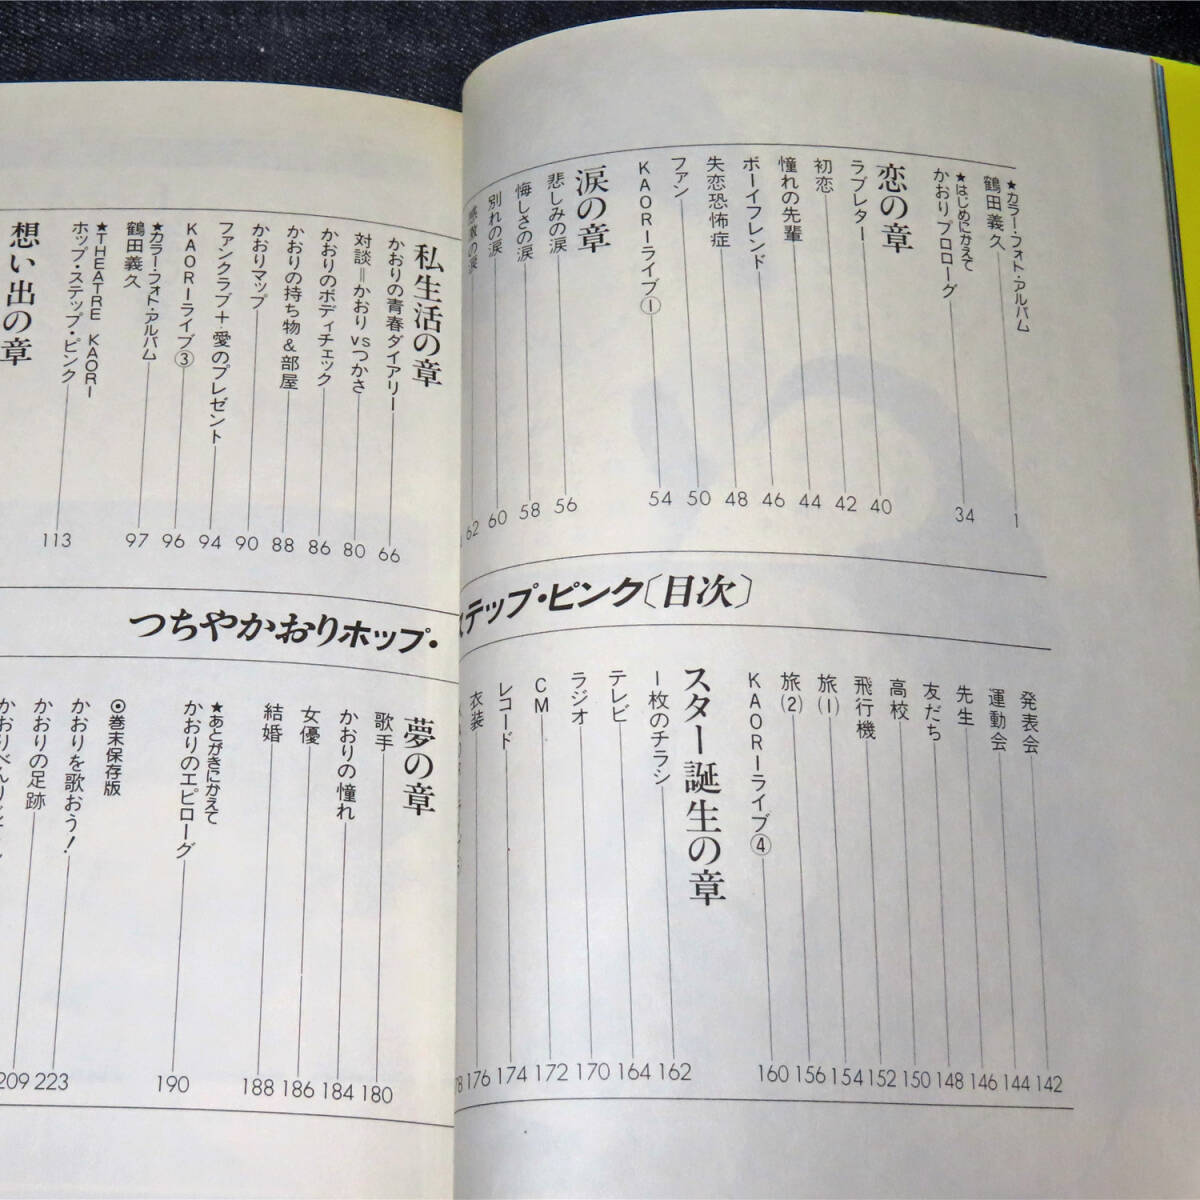 ★カラー・フォト・アルバム
鶴田義久 1
★はじめにかえて
かおりプロローグ 34
恋の章
ラブレター 40
初恋 42
憧れの先輩 44
ボーイフレンド 46
失恋恐怖症 48
ファン 50
KAORIーライブ① 54
涙の章
悲しみの涙 56
悔しさの涙 58
別れの涙 60
の涙 62
私生活の章
かおりの青春ダイアリー 66
対談=かおりvsつかさ 80
かおりのボディチェック 86
かおりの持ち物&部屋 88
かおりマップ 90
ファンクラブ+愛のプレゼント 94
KAORIーライブ③ 96
★カラー・フォト・アルバム
鶴田義久 97
★THEATRE KAORI
ホップ・ステップ・ピンク 113
想い出の章
つちやかおりホップ・ステップ・ピンク〔目次〕
発表会 142
運動会 144
先生 146
友だち 148
高校 150
飛行機 152
旅(1) 154
旅(2) 156
KAORIーライブ④ 160
スター誕生の章
一枚のチラシ 162
テレビ 164
ラジオ 170
CM 172
レコード 174
衣装 176
夢の章
歌手 180
かおりの憧れ 184
女優 186
結婚 188
★あとがきにかえて
かおりのエピローグ 190
◉巻末保存版
かおりを歌おう! 223
かおりの足跡 209